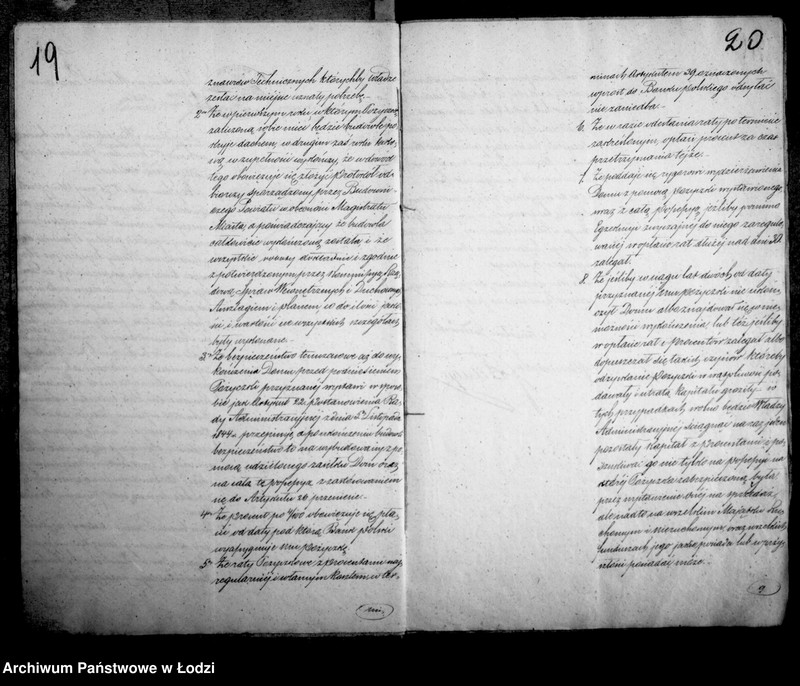 19
znawców Technicznych którychby władze
zesłać na miejsce uznały potrzebę.
2º Że w pierwszym roku w którym Pożyczkę
zaliczoną sobie mieć będzie budowle po-
kryje dachem, w drugim zaś roku takową
w zupełności wykończy, że w dowod
tego obowiązuje się złożyć protokół od-
biorczy sporządzony przez Budowni-
czego Powiatu w obecności Magistratu
Miasta, a poświadczający że budowla
całkowicie wykończoną została i że
wszystkie roboty dokładnie i zgodnie
z potwierdzonym przez Kommissyą Rzą-
dową Spraw Wewnętrznych i Duchownych
Anszlagiem i planem, co do ilości
i wartości we wszystkich szczegółach
były wykonane.
3º Że bezpieczeństwo tymczasowe aż do wy-
kończenia Domu przed podniesieniem
Pożyczki przyznanej wystawi w spo-
sobie jak Artykuł 22. postanowienia Ra-
dy Administracyjnej z dnia Listopada
1844 r. przepisuje, a po ukończeniu budowli
bezpieczeństwo to na wybudowany z po-
mocą udzielonego zasiłku Dom oraz
na całą tę possessyę z zastosowaniem
się do Artykułu 26 przeniesie.
4º Że procent po 4/00 obowiązuje się pła-
cić od daty pod którą Bank Polski
wyassygnuje mu pożyczkę.
5º Że raty Pożyczkowe z procentami naj-
regularniej i własnym kosztem w ter-
min.
20
minach Artykułem 39 oznaczonych
wprost do Banku polskiego odsyłać
nie zaniedba.
6. Że w razie odesłania raty po terminie
zadzielonym, opłaci procent za czas
przetrzymania tejże.
7. Że poddaje się rygorowi wydzierżawienia
Domu z pomocą pożyczki wystawionego
wraz z całą possessyą jeżeliby pomimo
Egzekucyi zwyczajnej do niego zaregulo-
wanej w opłacie rat dłużej nad dni 30
zalegał.
8. Że jeśliby w ciągu lat dwóch od daty
przyznanej mu pożyczki nie ukoń-
czył Domu albo znajdował się w nie-
możności wykończenia, lub też jeśliby
w opłacie rat i procentów zalegał albo
dopuszczał się takich czynów któreby
odzyskanie pożyczki w wątpliwość po-
dawały i utratą Kapitału groziły – w
tych przypadkach wolno będzie Władzy
Administracyjnej ściągnąć na raz jeden
pozostały Kapitał z procentami i po-
szukiwać go nie tylko na possessyi na
której Pożyczka zabezpieczoną była
przez wystawienie onej na sprzedaż
ale nadto na wszelkim Majątku Ru-
chomym i nieruchomym, oraz wszelkich
funduszach jego jakie posiada lub w przy-
szłości posiadać może.
9
Archiwum Państwowe w Łodzi